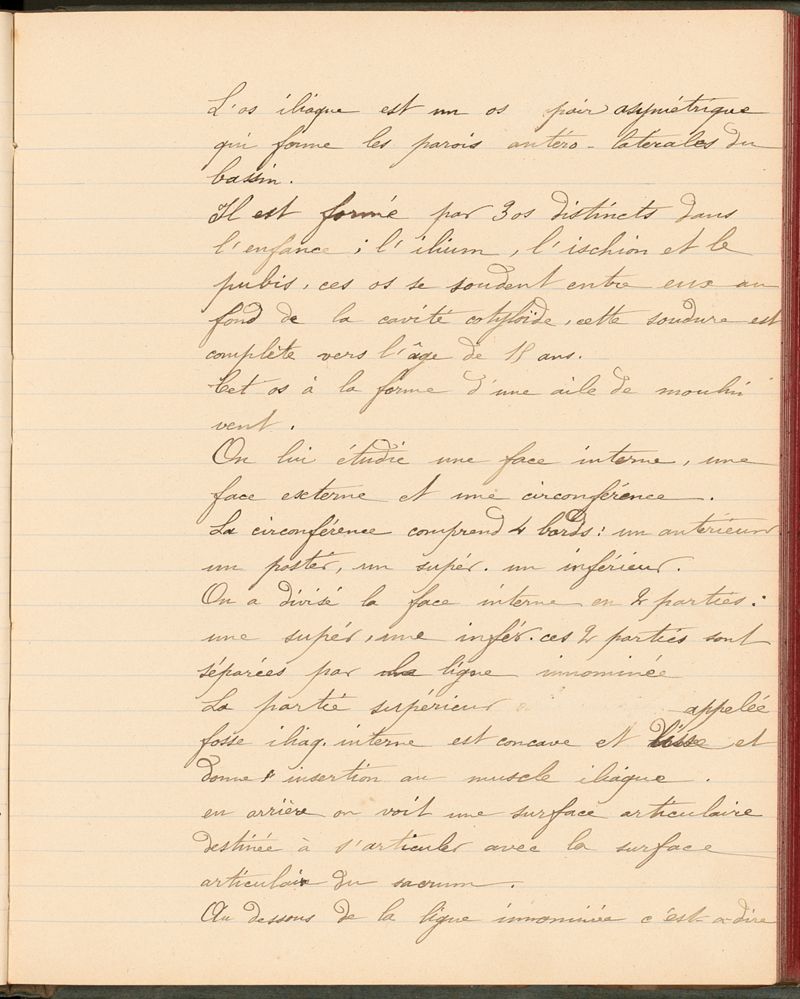 L'os iliaque est un os pair asymétrique
qui forme les parois antéro-latérales du
bassin.
Il est formé par 3 os distincts dans
l'enfance ; l'ilium, l'ischion et le
pubis, ces os se soudent entre eux au
fond de la cavité cotyloïde, cette soudure est
complète vers l'âge de 18 ans.
Cet os à la forme d'une aile de moulin
vent.
On lui étudie une face interne, une
face externe et une circonférence.
La circonférence comprend 4 bords : un antérieur
un postér, un supér. un inférieur.
On a divisé la face interne en 2 parties :
une supér, une infér. ces 2 parties sont
séparées par la ligne innominée
La partie supérieur appelée
fosse iliaq. interne est concave et lisse et
donne insertion au muscle iliaque.
en arrière on voit une surface articulaire
destinée à s'articuler avec la surface
articulaire du sacrum.
Au dessous de la ligne innominée c'est-à-dire